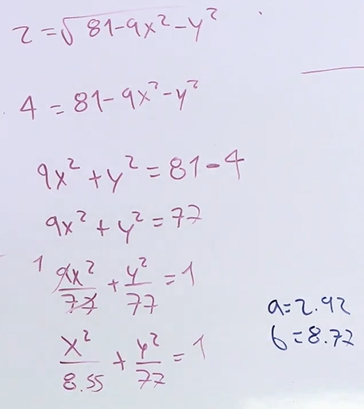 2=√81-9x²-y²
4=81-9x²-y²
9x²+y²=81-4
9x²+y²=77
1 9x²/77+y²/77=1
x²/8.55+y²/77=1
a=2.92
b=8.77